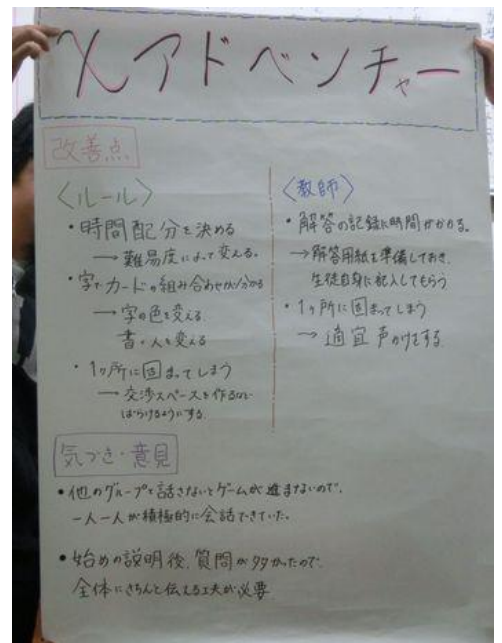 χアドベンチャー
改善点
〈ルール〉
・時間配分を決める
→難易度によって変える。
・字でカードの組み合わせが分かる
→字の色を変える
書く人を変える
・1ヶ所に固まってしまう
→交渉スペースを作るなど
ばらけるようにする。
〈教師〉
・解答の記録に時間がかかる。
→解答用紙を準備しておき、
生徒自身に記入してもらう
・1ヶ所に固まってしまう
→適宜声かけをする
気づき・意見
・他のグループと話さないとゲームが進まないので、
一人一人が積極的に会話できていた。
・始めの説明後、質問が多かったので、
全体にきちんと伝える工夫が必要